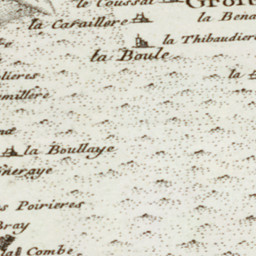 le Coussat
la Cafaillere
la Bena
la Thibaudier
la Boule
lieres
milliere
la Boullaye
neraye
s Poirieres
Bray
la Combe